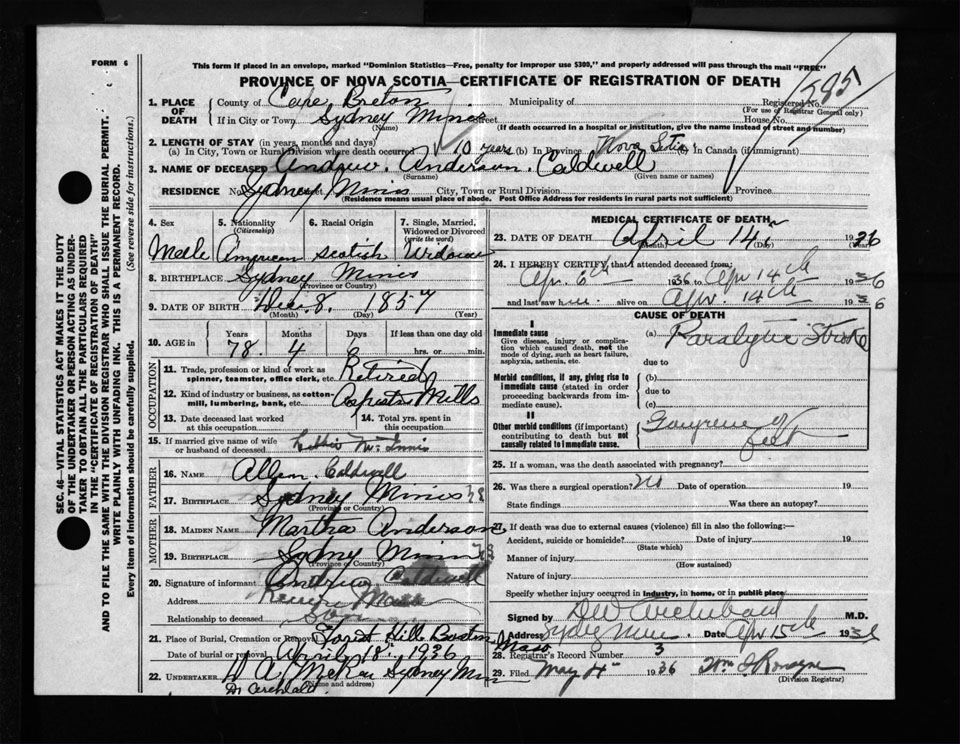 FORM 6
This form if placed in an envelope, marked "Dominion Statistics—Free, penalty for improper use $300," and properly addressed will pass through the mail "FREE"
PROVINCE OF NOVA SCOTIA—CERTIFICATE OF REGISTRATION OF DEATH
SEC. 46—VITAL STATISTICS ACT MAKES IT THE DUTY
OF THE UNDERTAKER OR PERSON ACTING AS UNDER-
TAKER TO OBTAIN ALL THE PARTICULARS REQUIRED
IN THE "CERTIFICATE OF REGISTRATION OF DEATH"
AND TO FILE THE SAME WITH THE DIVISION REGISTRAR WHO SHALL ISSUE THE BURIAL PERMIT.
WRITE PLAINLY WITH UNFADING INK. THIS IS A PERMANENT RECORD.
Every item of information should be carefully supplied. (See reverse side for instructions.)
1. PLACE OF DEATH
County of Cape Breton Municipality of Registered No. 595
(For use of Registrar General only)
If in City or Town Sydney Mines Street House No.
(Name) (If death occurred in a hospital or institution, give the name instead of street and number)
2. LENGTH OF STAY (in years, months and days)
(a) In City, Town or Rural Division where death occurred 10 years (b) In Province Nova Scotia (c) In Canada (if immigrant)
3. NAME OF DECEASED Andrew Anderson Caldwell
(Surname) (Given name or names)
RESIDENCE No. Sydney Mines City, Town or Rural Division Province
(Residence means usual place of abode. Post Office Address for residents in rural parts not sufficient)
4. Sex
Male
5. Nationality
(Citizenship)
American
6. Racial Origin
Scotish
7. Single, Married,
Widowed or Divorced
(write the word)
Widower
8. BIRTHPLACE Sydney Mines
(Province or Country)
9. DATE OF BIRTH Dec. 8. 1857
(Month) (Day) (Year)
10. AGE in
Years Months Days If less than one day old
78. 4 6 hrs. or min.
OCCUPATION
11. Trade, profession or kind of work as
spinner, teamster, office clerk, etc. Retired
12. Kind of industry or business, as cotton-
mill, lumbering, bank, etc. Mills
13. Date deceased last worked
at this occupation
14. Total yrs. spent in
this occupation
15. If married give name of wife
or husband of deceased McInnis
FATHER
16. NAME Allan Caldwell
17. BIRTHPLACE Sydney Mines
(Province or Country)
MOTHER
18. MAIDEN NAME Martha Anderson
19. BIRTHPLACE Sydney Mines
(Province or Country)
20. Signature of informant Caldwell
Address Mass
Relationship to deceased Son
21. Place of Burial, Cremation or Removal Forest Hills Boston Mass
Date of burial or removal April 18" 1936
22. UNDERTAKER Sydney Mines
(Name and address)
MEDICAL CERTIFICATE OF DEATH
23. DATE OF DEATH April 14" 1936
(Month) (Day) (Year)
24. I HEREBY CERTIFY that I attended deceased from:
Apr. 6th 1936 to Apr 14th 1936
and last saw him alive on Apr. 14th 1936
CAUSE OF DEATH
I
Immediate cause
Give disease, injury or complica-
tion which caused death, not the
mode of dying, such as heart failure,
asphyxia, asthenia, etc.
(a) Paralytic Stroke
due to
Morbid conditions, if any, giving rise to
immediate cause (stated in order
proceeding backwards from im-
mediate cause).
(b)
due to
(c)
II
Other morbid conditions (if important)
contributing to death but not
causally related to immediate cause.
Gangrene of
feet
25. If a woman, was the death associated with pregnancy?
26. Was there a surgical operation? No Date of operation 19
State findings Was there an autopsy?
27. If death was due to external causes (violence) fill in also the following:—
Accident, suicide or homicide? Date of injury 19
(State which)
Manner of injury
(How sustained)
Nature of injury
Specify whether injury occurred in industry, in home, or in public place
Signed by Archibald M.D.
Address Sydney Mines Date Apr 15th 1936
28. Registrar's Record Number 3
29. Filed May 4" 1936
(Division Registrar)